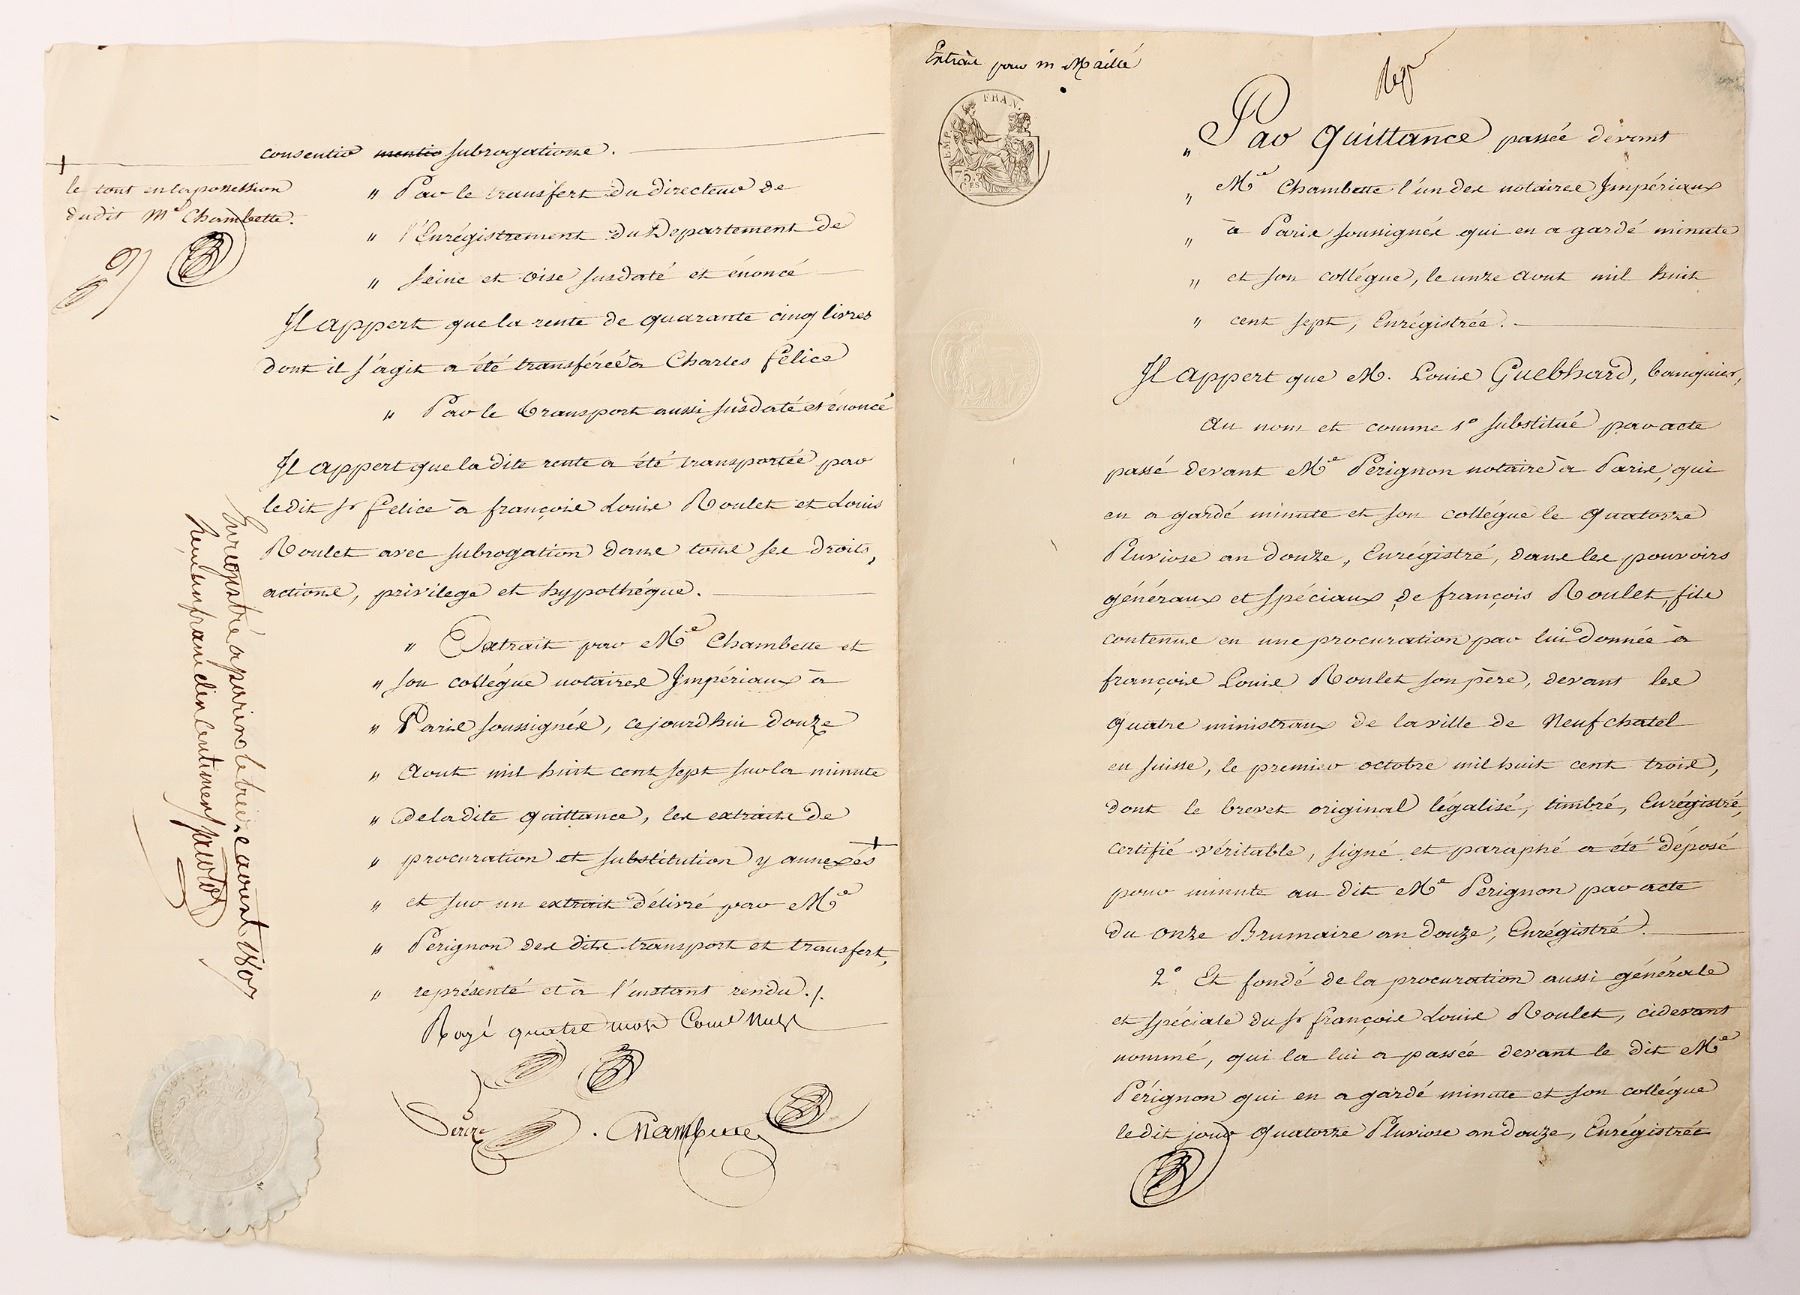 consentir mentio subrogations.
le tout en la possession
dudit Me Chambette.
" Par le transfert du directeur de
" l'Enrégistrement du Département de
" Seine et Oise susdaté et énoncé
Il appert que la rente de quarante cinq livres
dont il s'agit a été transférée à Charles Félice
" Par le transport aussi susdaté et énoncé
Il appert que la dite rente a été transportée par
ledit Sr Felice à françois Louis Roulet et Louis
Roulet avec subrogation dans tous ses droits,
actions, privilege et hypothéque.
" Extrait par Me Chambette et
" son collégue notaires Impériaux à
" Paris soussignés, cejourdhui douze
" Aout mil huit cent sept sur la minute
" de la dite quittance, les extraits de
" procuration et substitution y annexés
" et sur un extrait délivré par Me
" Perignon des dits transport et transfert,
" représenté et à l'instant rendu ./.
Rayé quatre mots Comme Nuls
Chambette
Enregistré a paris le treize aoust 1807
Reçu un franc dix centimes
Extrait pour M Maillé
EMP. FRAN.
75
" Par Quittance passée devant
" Me Chambette l'un des notaires Impériaux
" à Paris soussignés qui en a gardé minute
" et son collégue, le onze Aout mil huit
" cent sept, Enrégistrée.
Il Appert que M. Louis Guebhard, banquier,
Au nom et comme 1o substitué par acte
passé devant Me Pérignon notaire à Paris, qui
en a gardé minute et son collégue le quatorze
Pluviose an douze, Enrégistré, dans les pouvoirs
généraux et spéciaux de françois Roulet, fils
contenus en une procuration par lui donnée à
françois Louis Roulet son père, devant les
quatre ministraux de la ville de Neufchatel
en Suisse, le premier octobre mil huit cent trois,
dont le brevet original légalisé, timbré, Enrégistré,
certifié véritable, signé et paraphé a été déposé
pour minute au dit Me Perignon par acte
du onze Brumaire an douze, Enrégistré.
2o Et fondé de la procuration aussi générale
et spéciale du Sr françois Louis Roulet, cidevant
nommé, qui la lui a passée devant le dit Me
Pérignon qui en a gardé minute et son collégue
ledit jour quatorze Pluviose an douze, Enrégistrée